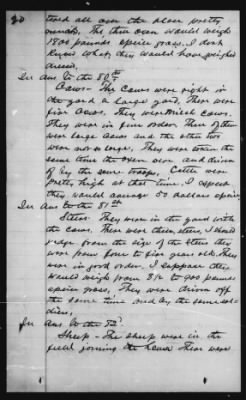 20
tered all over the place pretty
much. The three oxen would weigh
1800 pounds apiece gross, I dont
know what they would have weighed
dressed.
In Ans to the 80th
Cows - The cows were right in
the yard a large yard, There were
five cows. They were milch cows.
They were in fine order. Three of them
were large cows and the other two
were not so large. They were taken the
same time the oxen were and driven
off by the same troops. Cattle were
pretty high at that time. I expect
they would average 50 dollars apiece
In Ans to the 81st
Steers. They were in the yard with
the cows. There were three steers. I should
judge from the size of the steers they
were from four to five years old. They
were in good order. I suppose they
would weigh from 8 to 900 pounds
apiece gross, They were driven off
the same time and by the same sol-
diers.
In Ans to the
Sheep - The sheep were in the
field joining the house There were